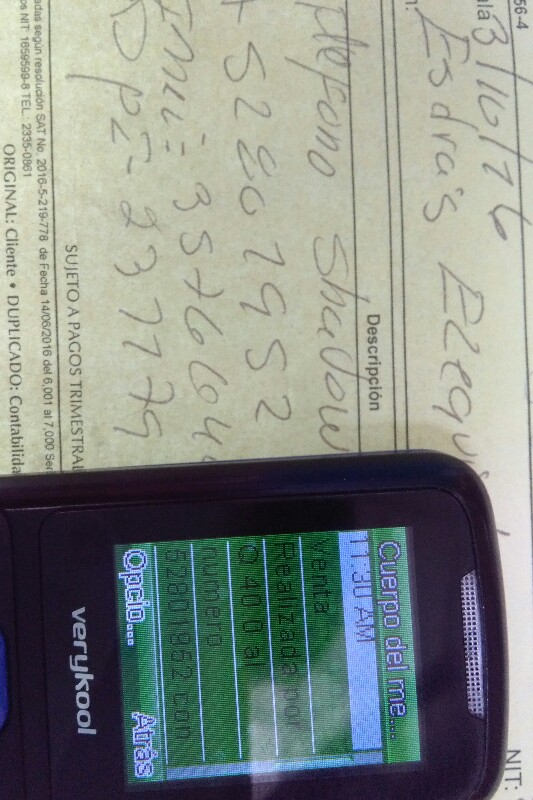 56-4
NIT:
ala
n:
Esdras Ezequi
Descripción
elefono Shadow
52801952
357660
SUJETO A PAGOS TRIMESTRAL
adas según resolución SAT No. 2016-5-219-778 de Fecha 14/06/2016 del 6,001 al 7,000 Ser
os NIT: 1659599-8 TEL.: 2335-0861
ORIGINAL: Cliente • DUPLICADO: Contabilida
Cuerpo del me...
11:30 AM
Venta
Realizada por
Q 40.0 al
numero
52801852 con
Opcio... Atrás
verykool